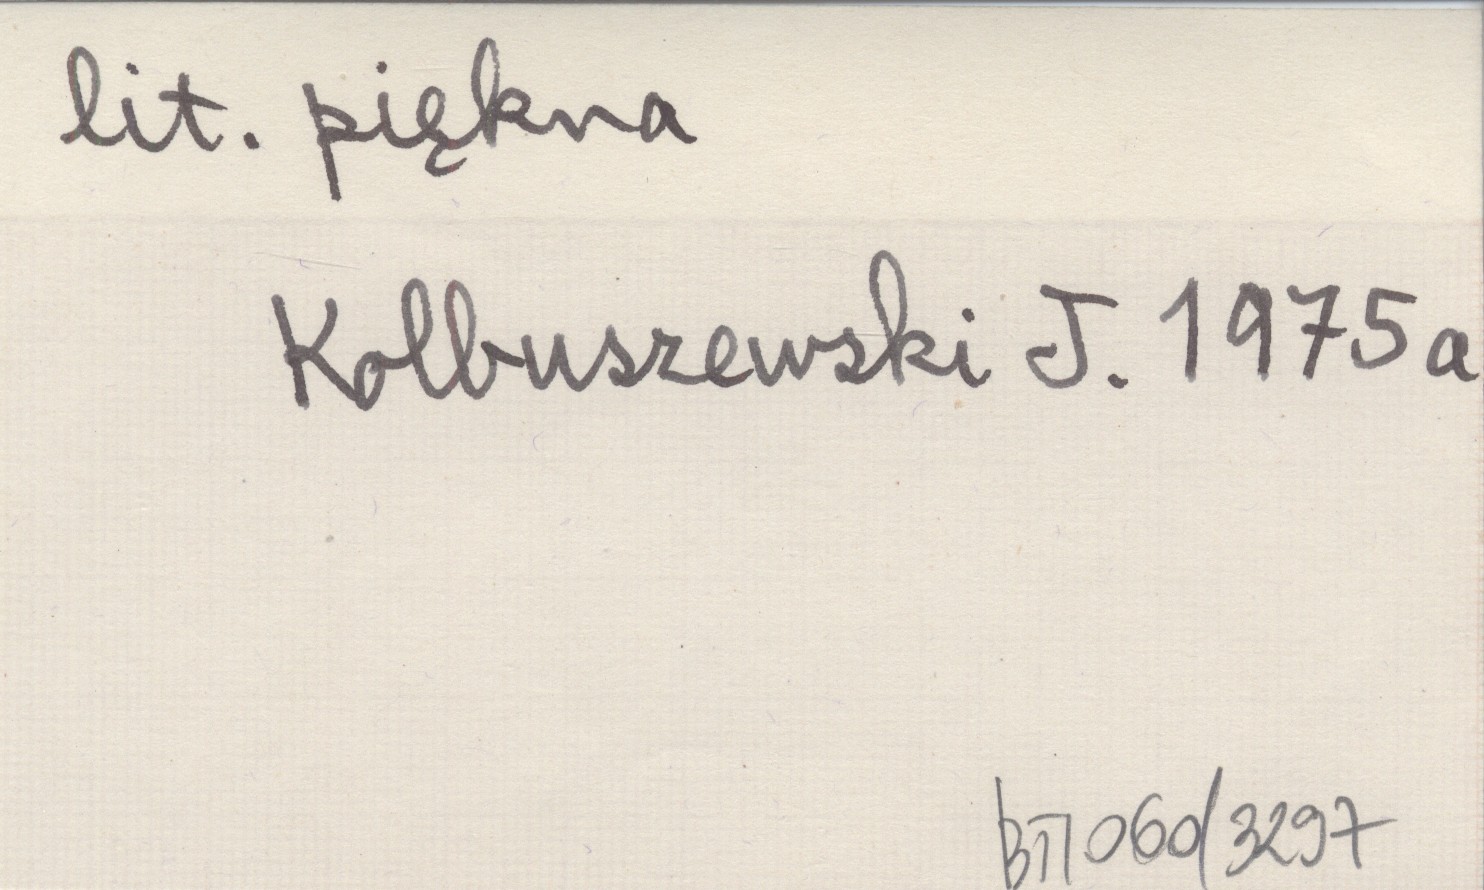 lit. piękna
Kolbuszewski J. 1975a
060/3297